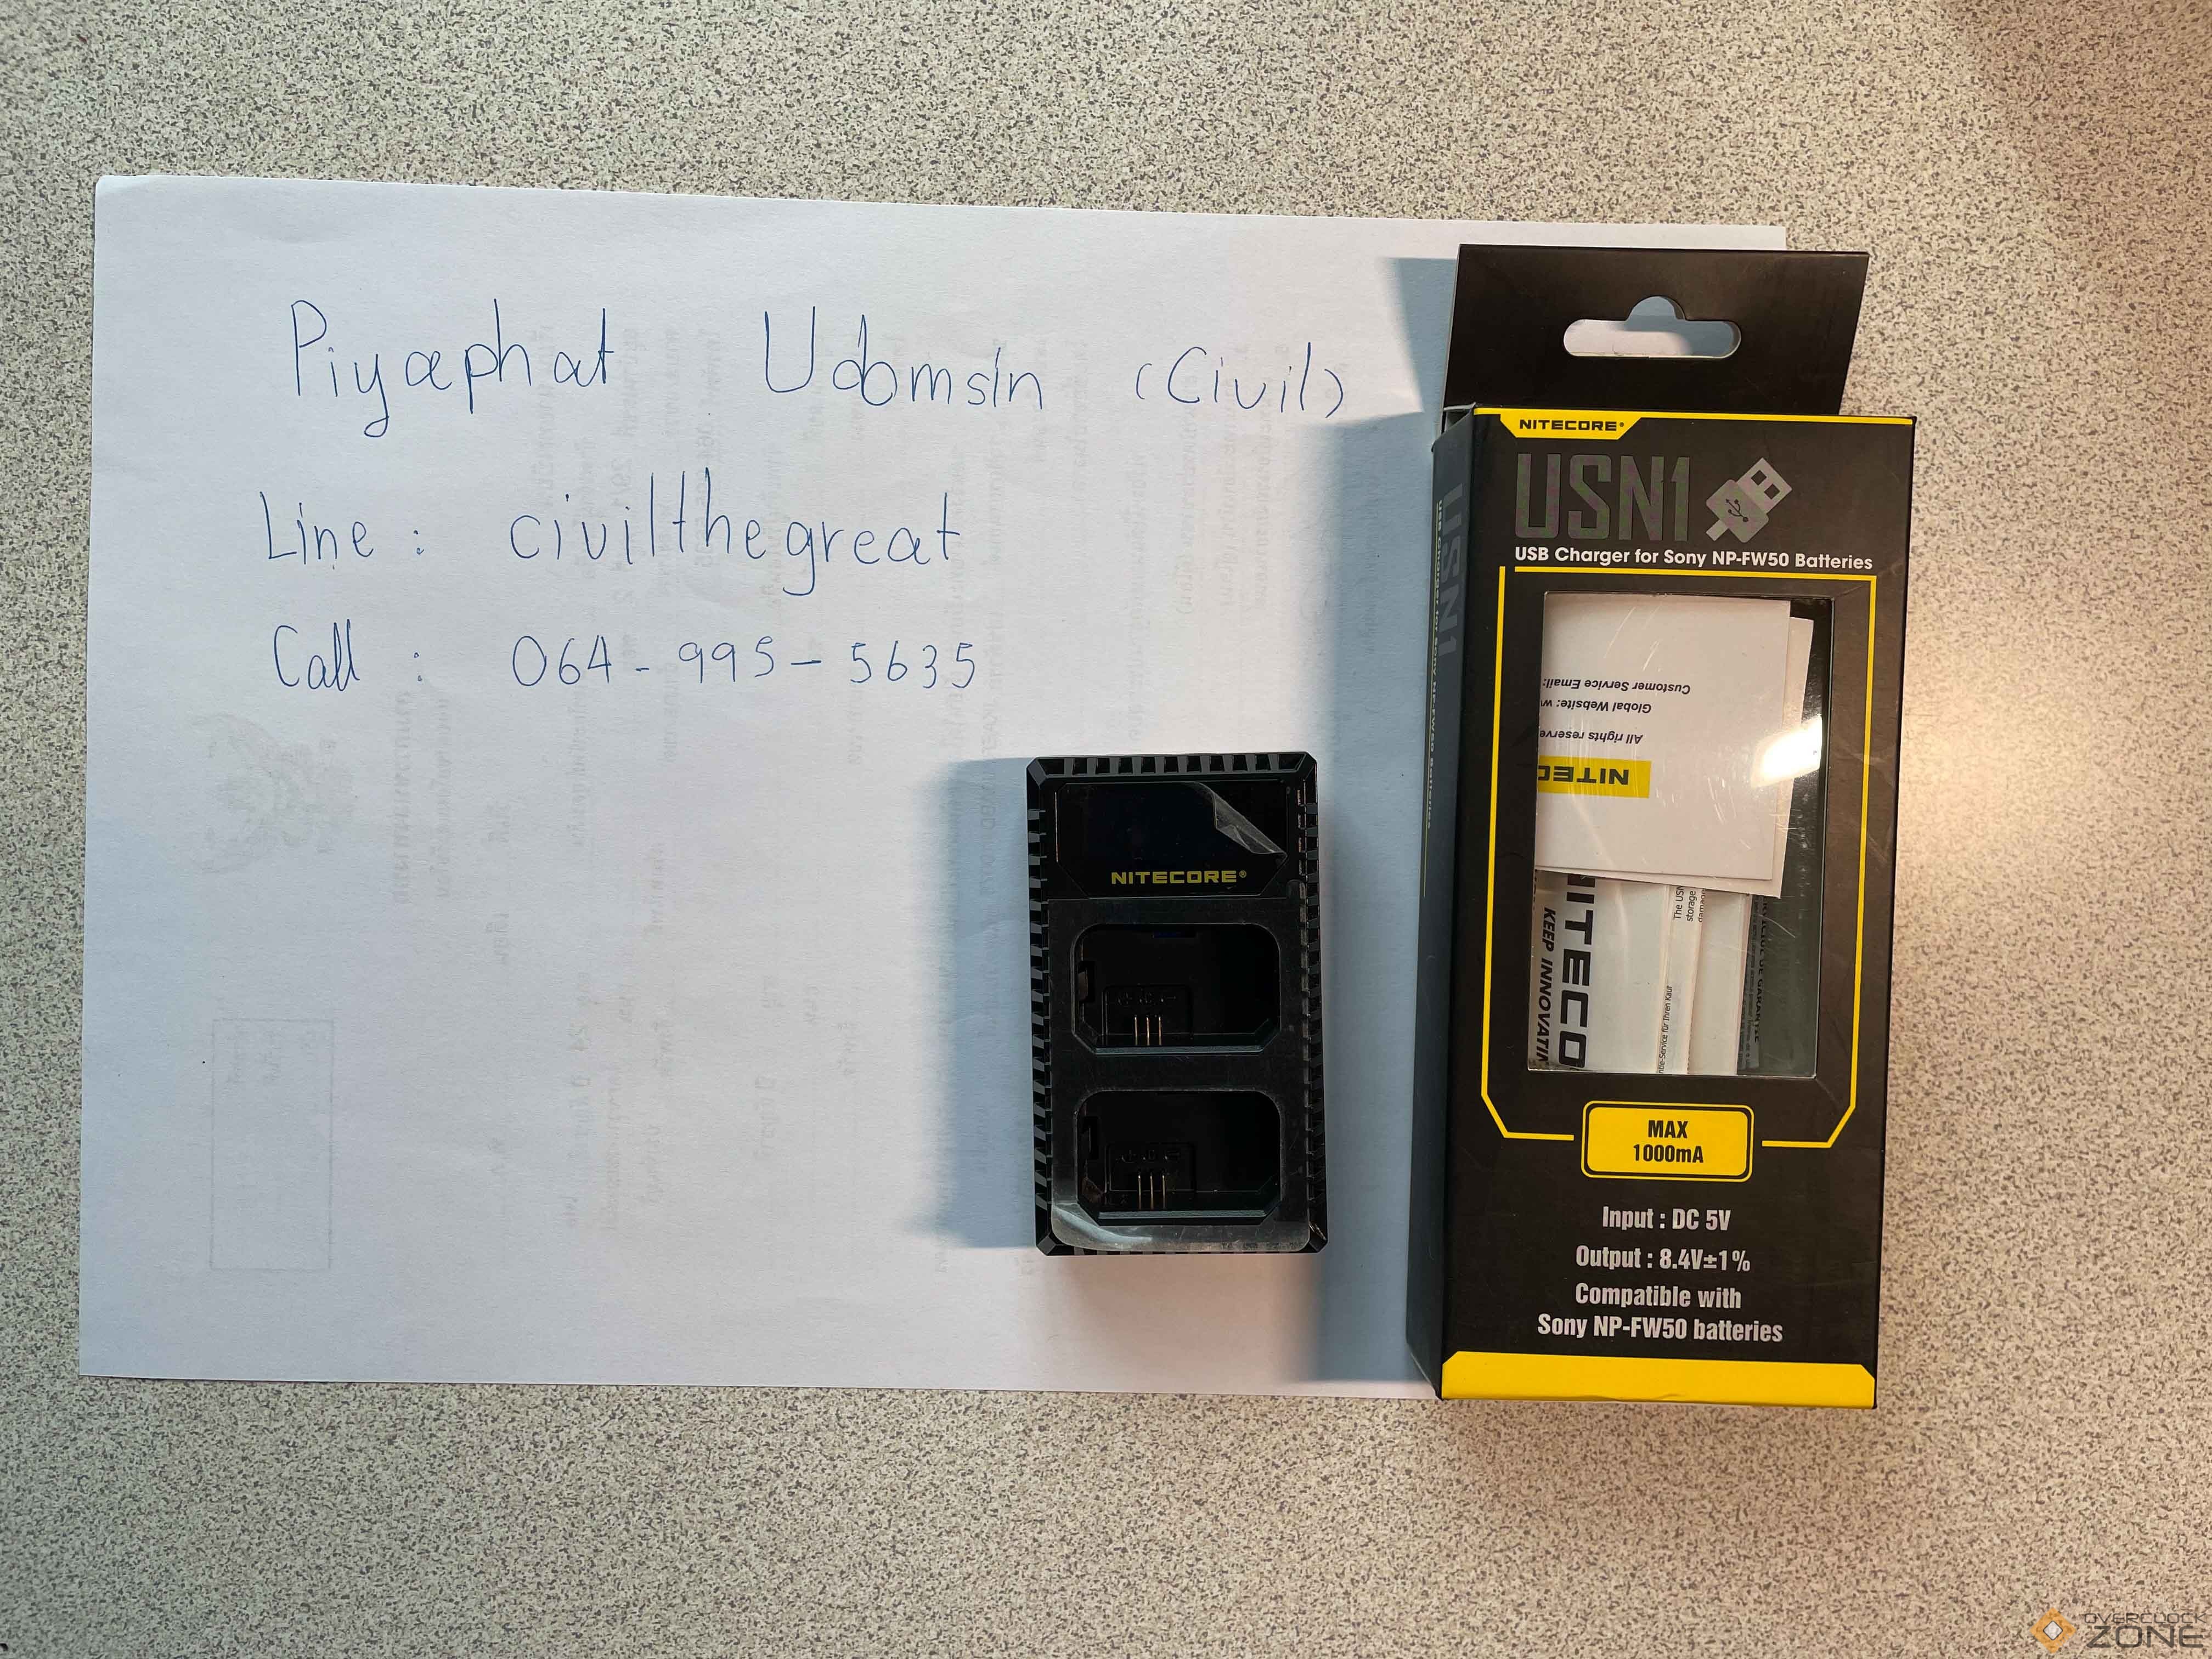 Piyaphat Udomsin (Civil)
Line : civilthegreat
Call : 064-995-5635
NITECORE®
NITECORE®
USN1
USB Charger for Sony NP-FW50 Batteries
USN1
USB Charger for Sony NP-FW50 Batteries
Customer Service Email:
Global Website:
All rights
NITEC
NITECO
KEEP
The
storage
MAX
1000mA
Input : DC 5V
Output : 8.4V±1%
Compatible with
Sony NP-FW50 batteries
OVERCLOCK
ZONE